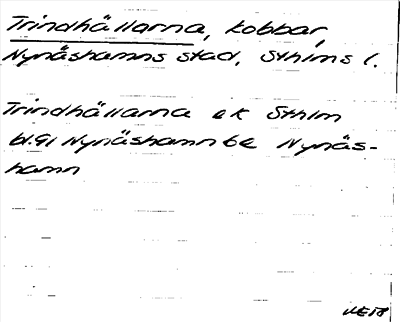 Trindhällarna, kobbar,
Nynäshamns stad, Sthlms l.
Trindhällarna ek Sthlm
bl.91 Nynäshamn 6e Nynäs-
hamn